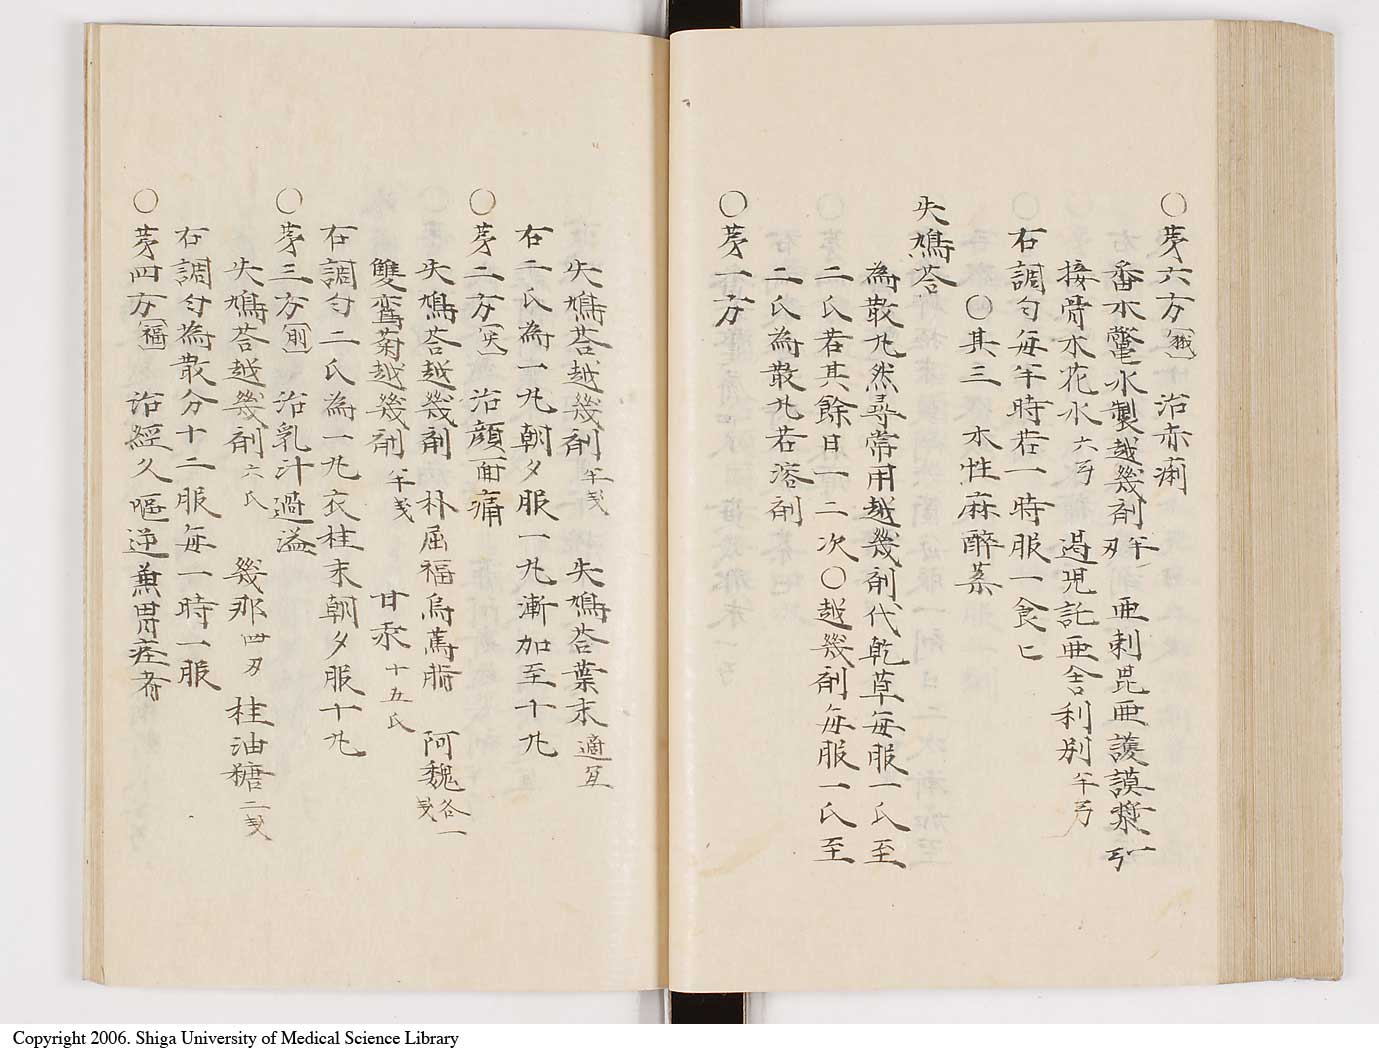 ○芽六方 治赤痢
番木鼈水製越幾剤 半刄 亜剌毘亜護謨漿 一弓
接骨木花水 六弓 渴児託亜舎利別 半弓
右調匀毎半時若一時服一食匕
○其三 木性麻酔薬
失鳩荅
為散丸然尋常用越幾剤代乾草毎服一氏至
二氏若其餘日一二次○越幾剤毎服一氏至
二氏為散丸若溶剤
○芽一方
失鳩荅越幾剤 半戔 失鳩荅葉末 適宜
右二氏為一丸朝夕服一丸漸加至十丸
○芽二方 治顔面痛
失鳩荅越幾剤 朴屈福烏萬脂 阿魏 各一戔
雙鸞菊越幾剤 半戔 甘汞 十五氏
右調匀二氏為一丸衣桂末朝夕服十丸
○芽三方 治乳汁過溢
失鳩荅越幾剤 六氏 幾那 四刄 桂油糖 二戔
右調匀為散分十二服毎一時一服
○芽四方 福 治經久嘔逆兼胃痙者
Copyright 2006. Shiga University of Medical Science Library